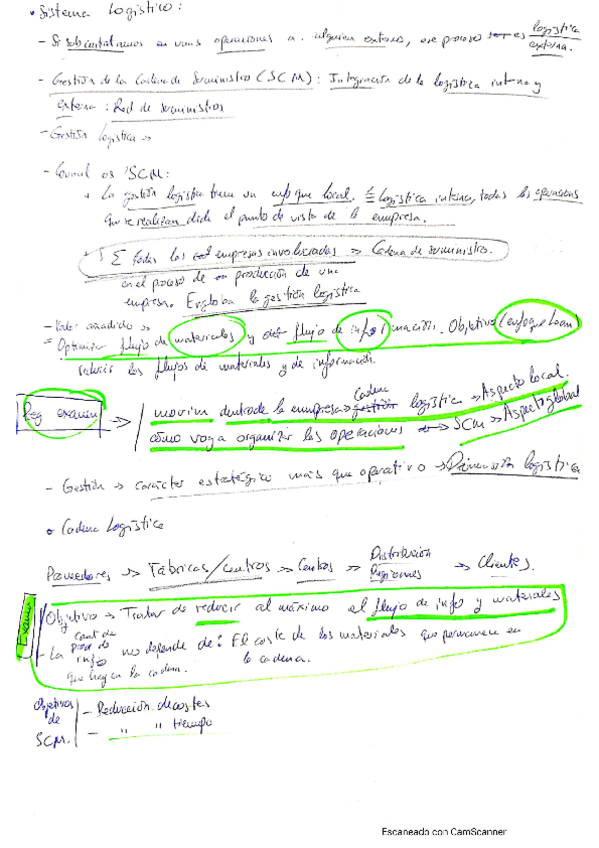 • Sistema Logístico:
- Si subcontratamos en unas operaciones a alguien externo, ese proceso es logística externa.
- Gestión de la Cadena de Suministro (SCM): Integración de la logística interna y
externa: Red de suministros
- Gestión logística →
SCM:
La gestión logística tiene un enfoque local. logística interna, todas las operaciones
que se realizan desde el punto de vista de la empresa.
Σ todas las empresas involucradas → Cadena de suministro.
en el proceso de producción de una
empresa. Engloba la gestión logística
- Valor añadido →
= Optimizar flujo de materiales y flujo de información. Objetivo (enfoque Lean)
reducir los flujos de materiales y de información.
Preg examen → movim dentro de la empresa → Cadena gestión logística → Aspecto local.
cómo voy a organizar las operaciones → SCM → Aspecto global
- Gestión → carácter estratégico más que operativo → Dimensión logística
• Cadena Logística
Proveedores → Fábricas/Centros → Centros → Distribución Regiones → Clientes.
Examen
Objetivo → Tratar de reducir al máximo el flujo de info y materiales
- La cant de prod y de info no depende de: El coste de los materiales que permanece en
que hay en la cadena. la cadena.
Objetivos de SCM.
- Reducción de costes
- " " tiempo
Escaneado con CamScanner